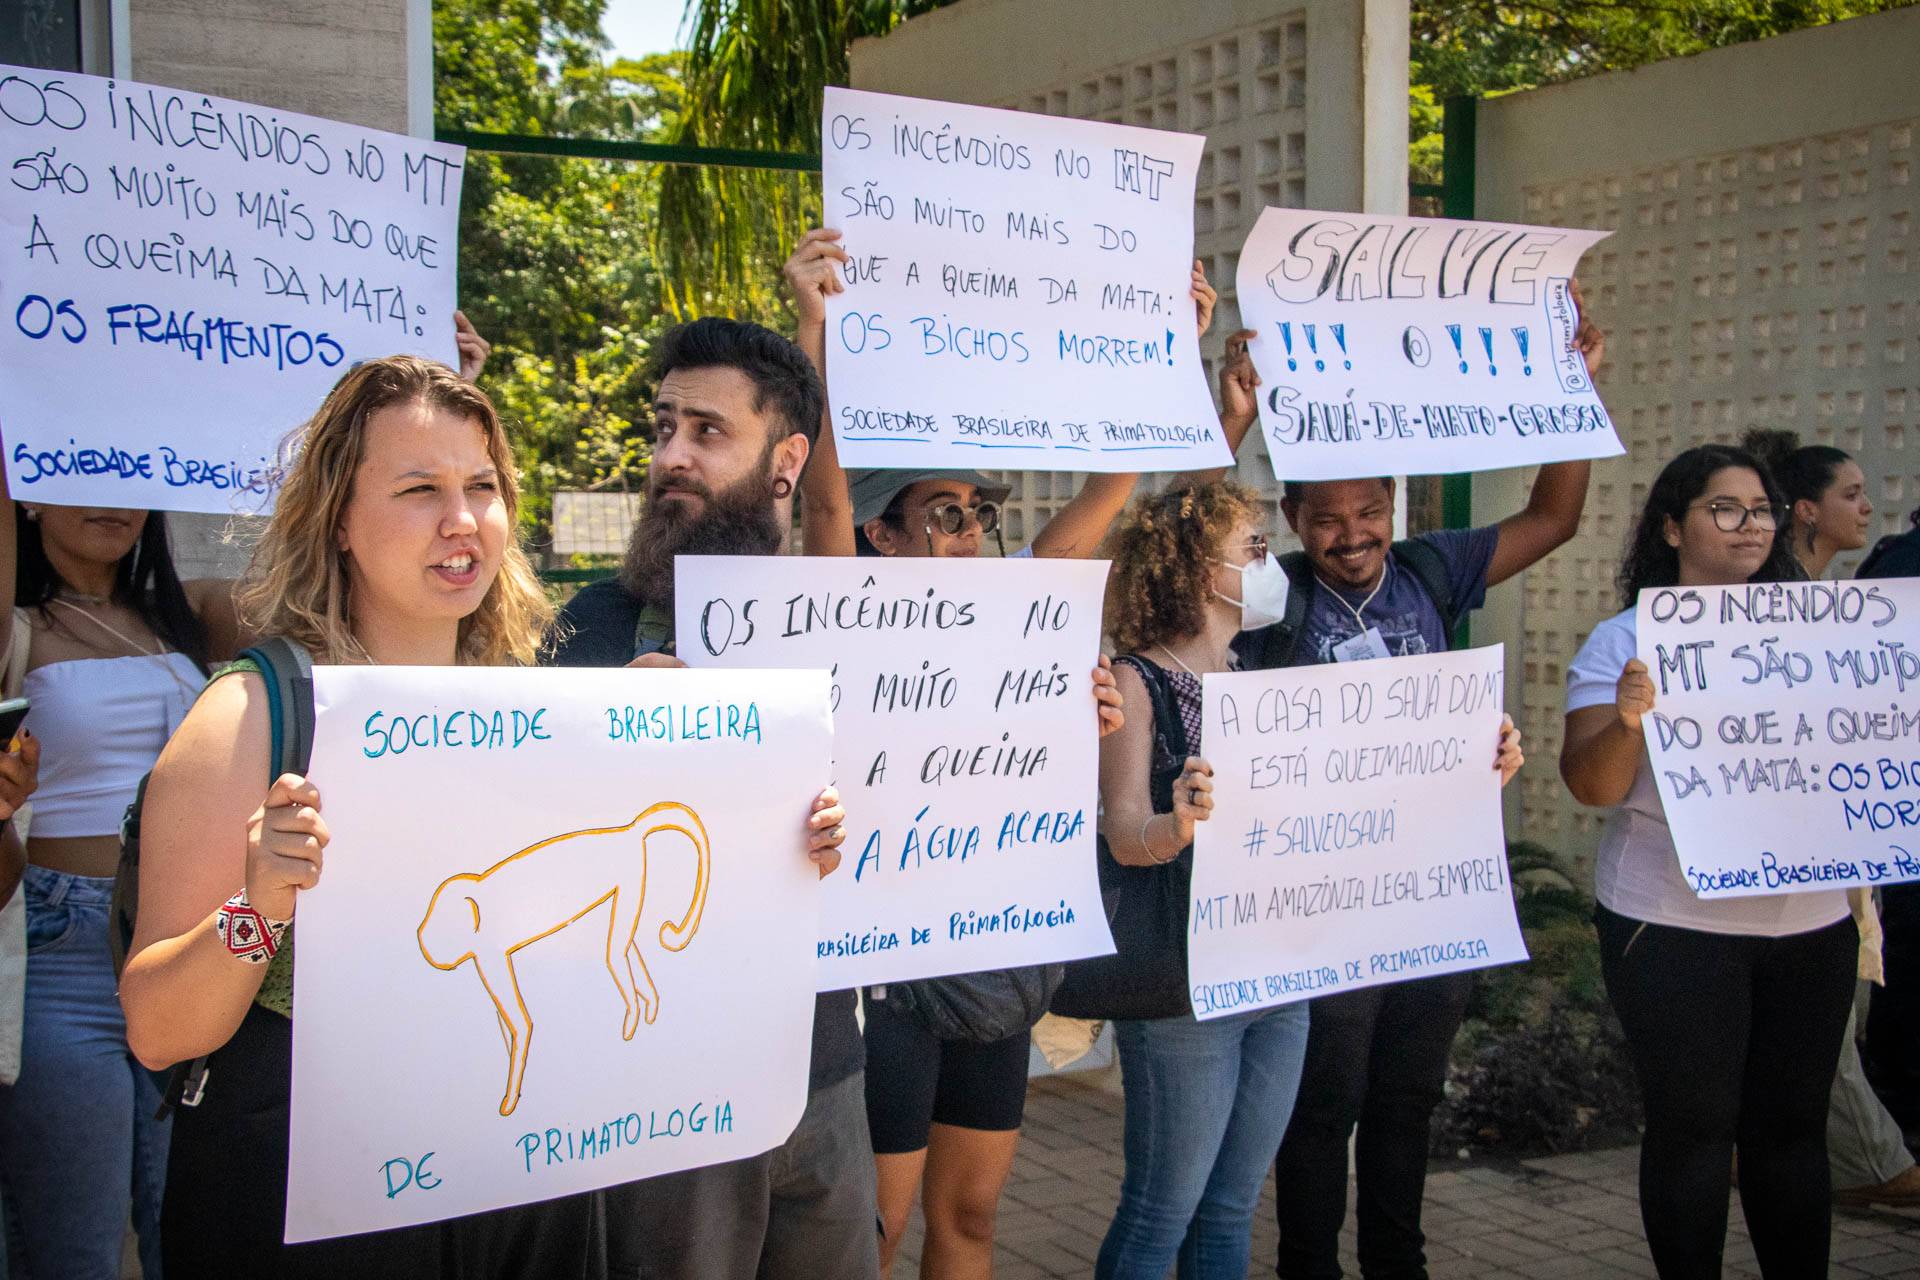 OS INCÊNDIOS NO MT
SÃO MUITO MAIS DO QUE
A QUEIMA DA MATA:
OS FRAGMENTOS
SOCIEDADE BRASILEI
OS INCÊNDIOS NO MT
SÃO MUITO MAIS DO
QUE A QUEIMA DA MATA:
OS BICHOS MORREM!
SOCIEDADE BRASILEIRA DE PRIMATOLOGIA
SALVE
!!! O !!!
@sbprimatologia
SAUÁ-DE-MATO-GROSSO
SOCIEDADE BRASILEIRA
DE PRIMATOLOGIA
OS INCÊNDIOS NO
MUITO MAIS
A QUEIMA
A ÁGUA ACABA
RASILEIRA DE PRIMATOLOGIA
A CASA DO SAUÁ DO MT
ESTÁ QUEIMANDO:
#SALVEOSAUÁ
MT NA AMAZÔNIA LEGAL SEMPRE!
SOCIEDADE BRASILEIRA DE PRIMATOLOGIA
OS INCÊNDIOS
MT SÃO MUITO
DO QUE A QUEIM
DA MATA: OS BIC
MOR
SOCIEDADE BRASILEIRA DE PRI